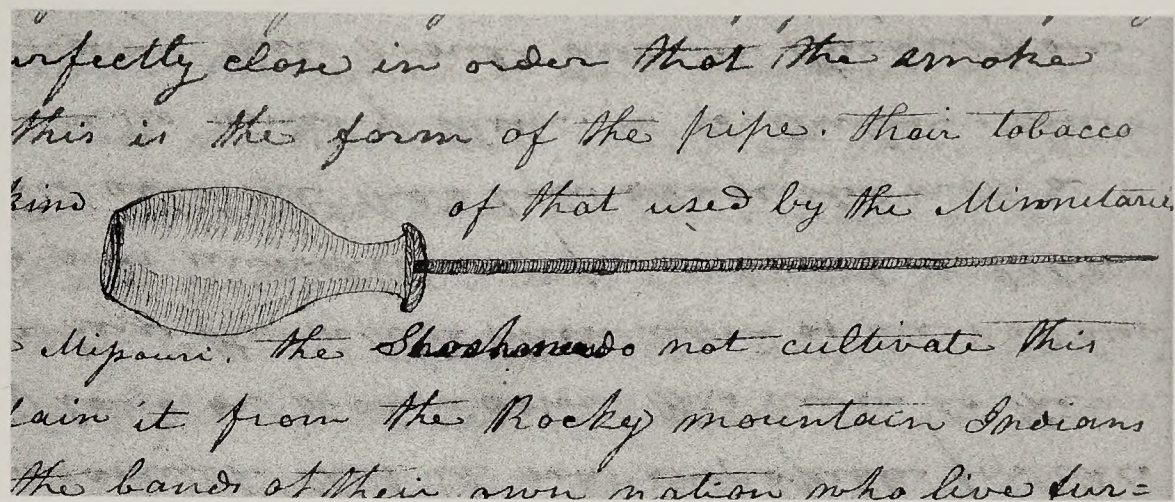 rfectly close in order that the smoke
this is the form of the pipe. thair tobacco
kind of that used by the Minnetares
Missouri. the Shoshonees do not cultivate this
tain it from the Rocky mountain Indians
the bands of their own nation who live fur=